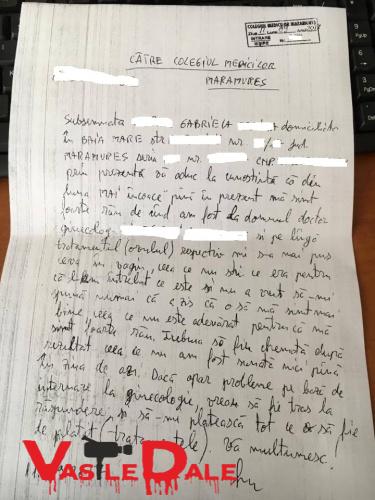 COLEGIUL MEDICILOR MARAMUREȘ
INTRARE
CĂTRE COLEGIUL MEDICILOR
MARAMUREȘ
Subsemnata GABRIELA domiciliată
în BAIA MARE str. nr. jud.
MARAMUREȘ seria nr. CNP
prin prezenta vă aduc la cunoștință că din
luna MAI încoace pînă în prezent mă simt
foarte rău de cînd am fost la domnul doctor
ginecolog și pe lîngă
tratamentul (ovule) respectiv mi s-a mai pus
ceva în vagin, ceea ce nu știu ce era pentru
că l-am întrebat ce este și nu a vrut să-mi
spună numai că a zis că o să mă simt mai
bine, ceea ce nu este adevărat pentru că mă
simt foarte rău. Trebuia să fiu chemată după
rezultat ceea ce nu am fost sunată nici pînă
în ziua de azi. Dacă apar probleme pe bază de
internare la ginecologie, vreau să fie tras la
răspundere și să-mi plătească tot ce o să fie
de plătit (tratamentele). Vă mulțumesc!
VASILE DALE